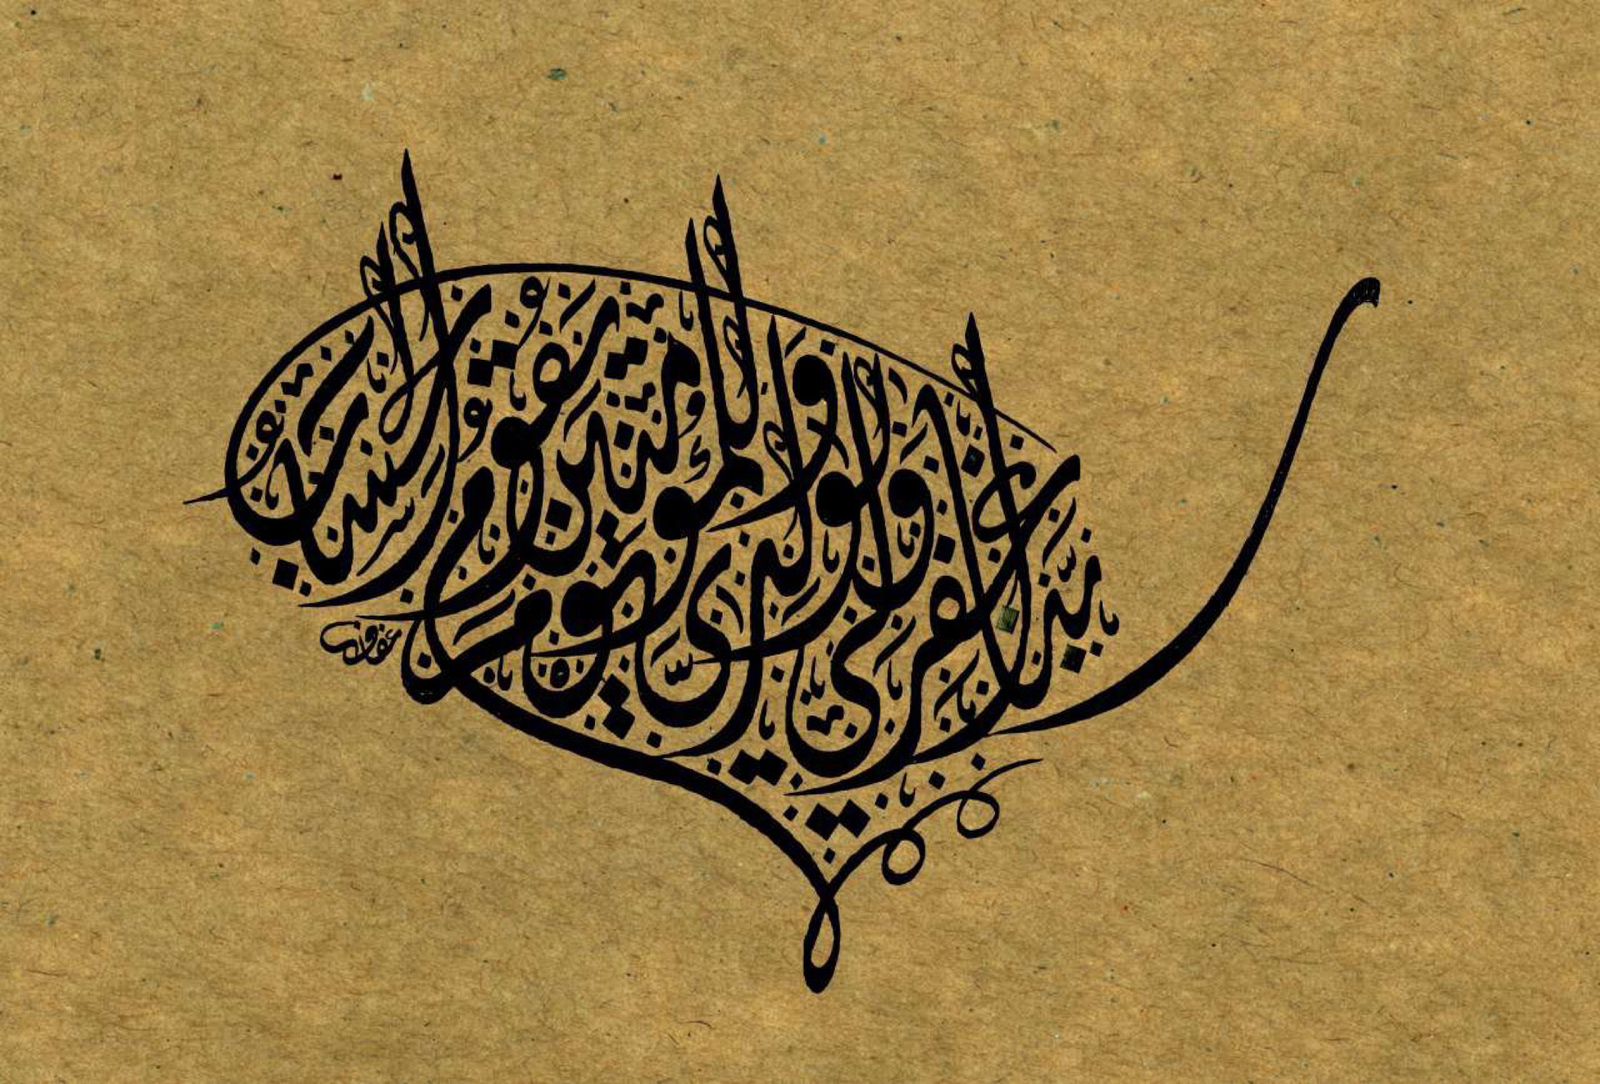 ربنا اغفر لي ولوالدي وللمؤمنين يوم يقوم الحساب